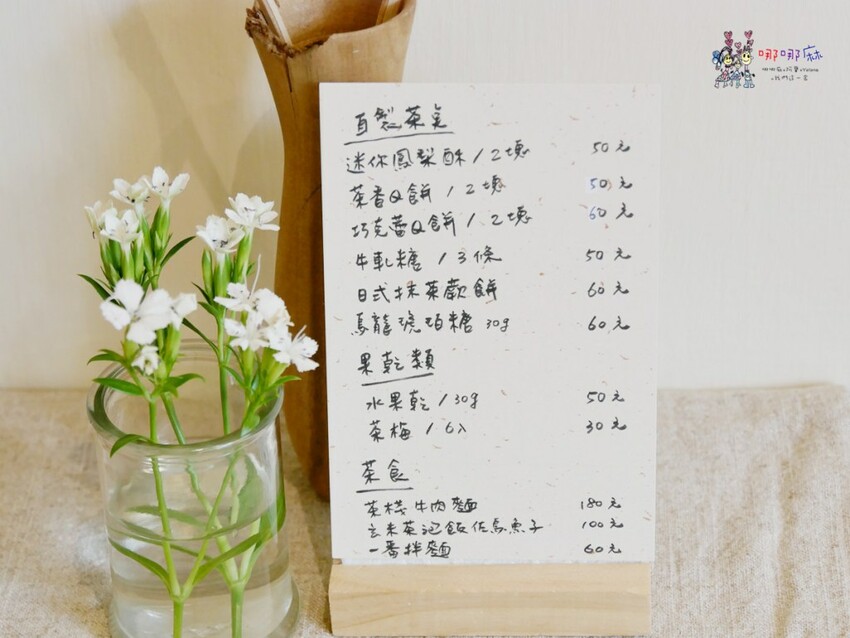 哪哪麻
自製茶點
迷你鳳梨酥/2塊 50元
茶香Q餅/2塊 50元
巧克蕾Q餅/2塊 60元
牛軋糖/3條 50元
日式抹茶歡餅 60元
烏龍琥珀糖 30g 60元
果乾類
水果乾/30g 50元
茶梅/6入 30元
茶食
茶棧牛肉麵 180元
玄米茶泡飯佐烏魚子 100元
一番拌麵 60元